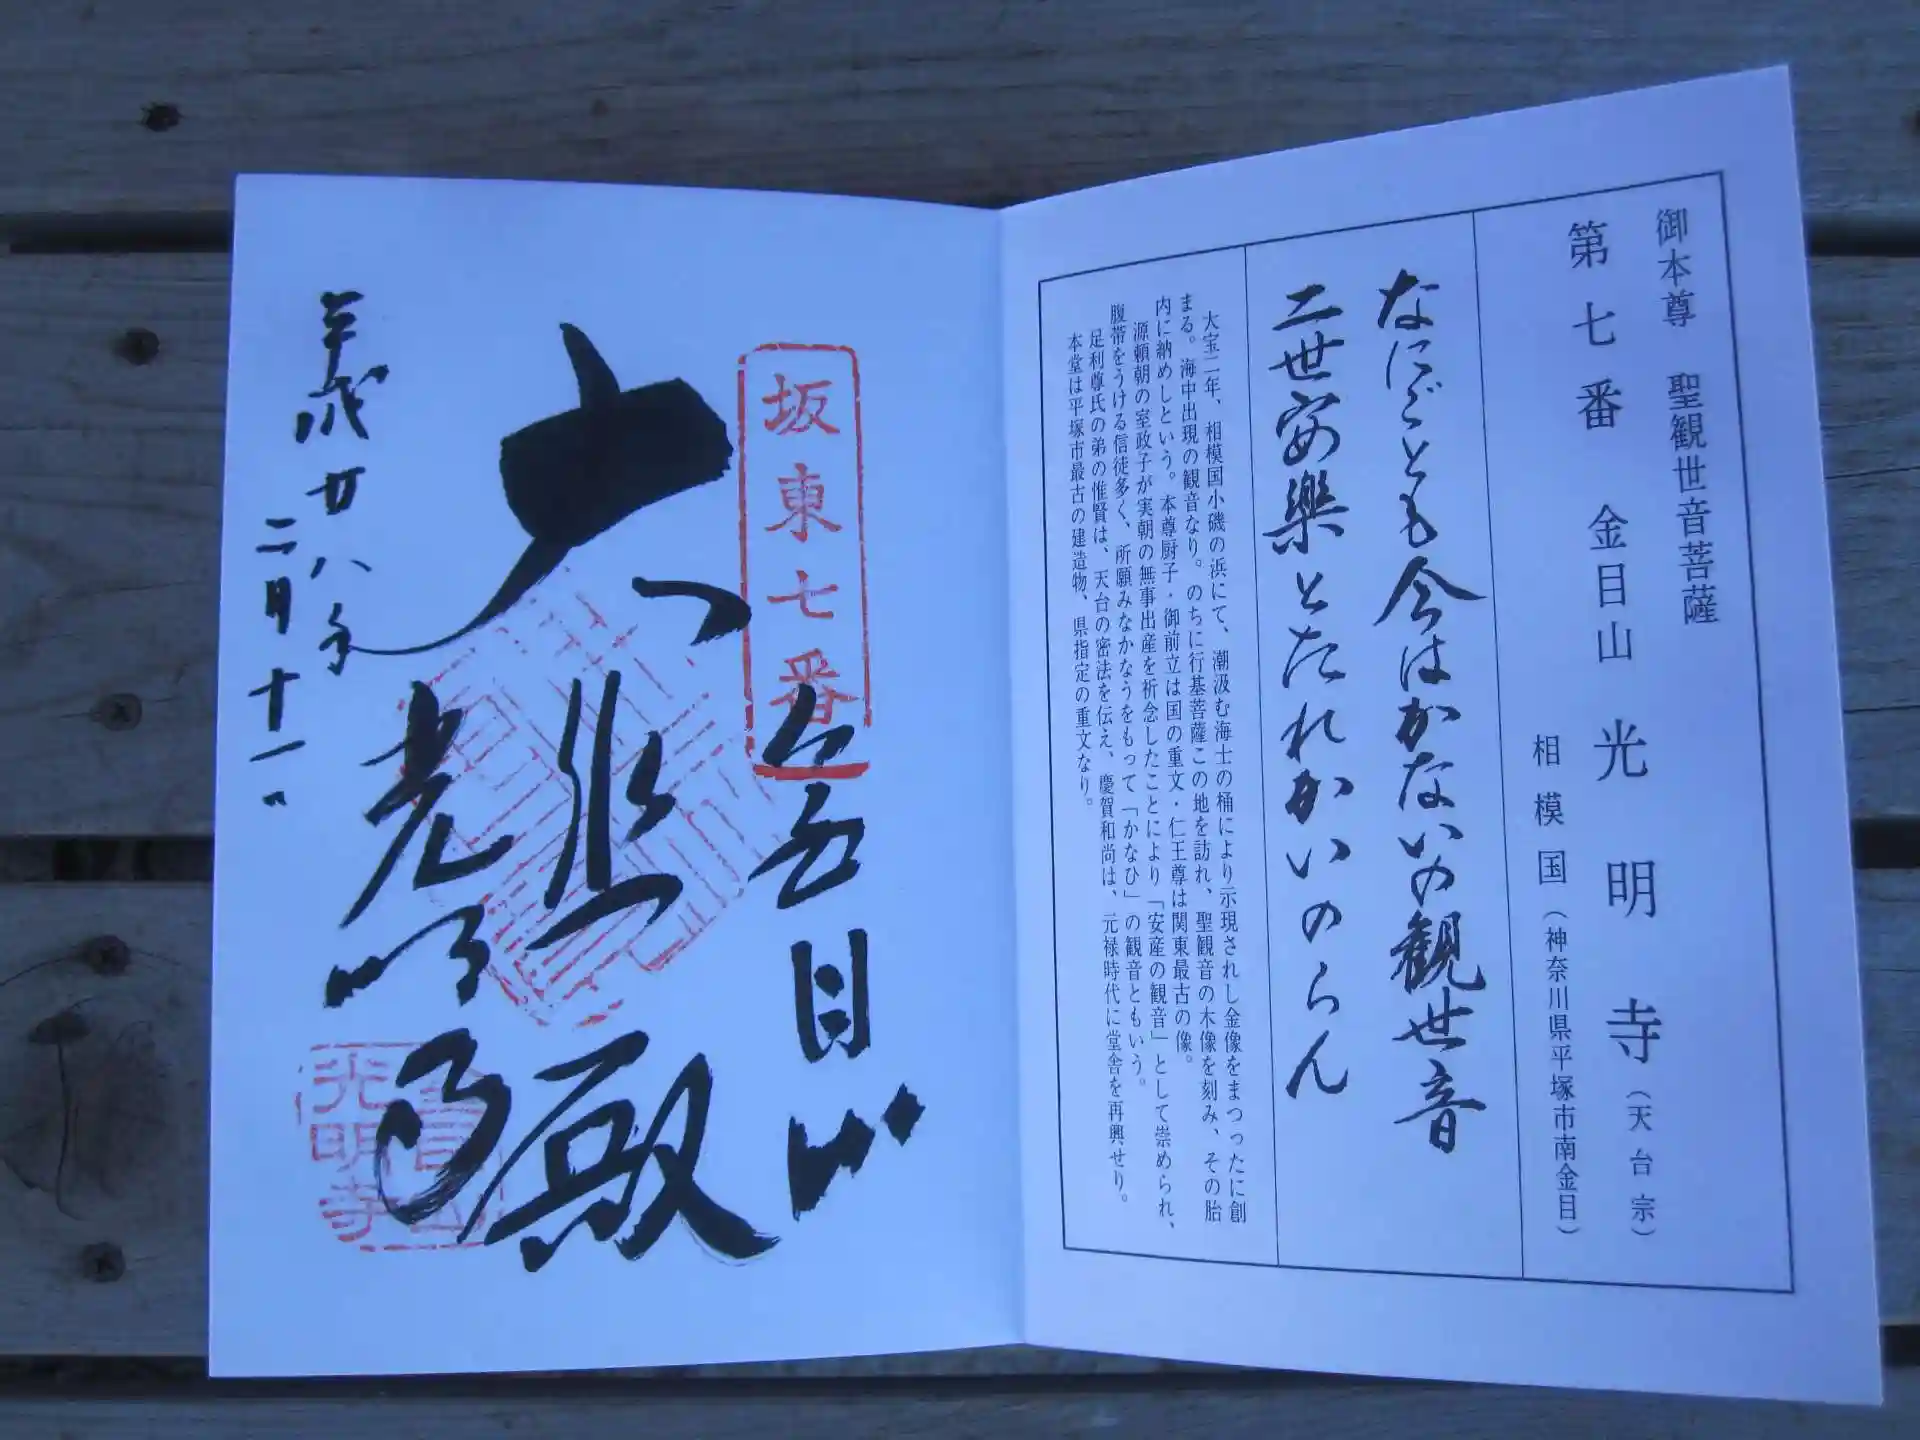 御本尊　聖観世音菩薩
第七番　金目山　光明寺（天台宗）
相模国（神奈川県平塚市南金目）
なにごとも今はかないの観世音
二世安楽とたれかいのらん
大宝二年、相模国小磯の浜にて、潮汲む海士の桶により示現されし金像をまつったに創
まる。海中出現の観音なり。のちに行基菩薩この地を訪れ、聖観音の木像を刻み、その胎
内に納めしという。本尊厨子・御前立は国の重文・仁王尊は関東最古の像。
源頼朝の室政子が実朝の無事出産を祈念したことにより「安産の観音」として崇められ、
腹帯をうける信徒多く、所願みなかなうをもって「かなひ」の観音ともいう。
足利尊氏の弟の惟賢は、天台の密法を伝え、慶賀和尚は、元禄時代に堂舎を再興せり。
本堂は平塚市最古の建造物、県指定の重文なり。
坂東七番
金目山
大悲殿
光明寺
平成廿八年
二月十一日
金目山
光明寺